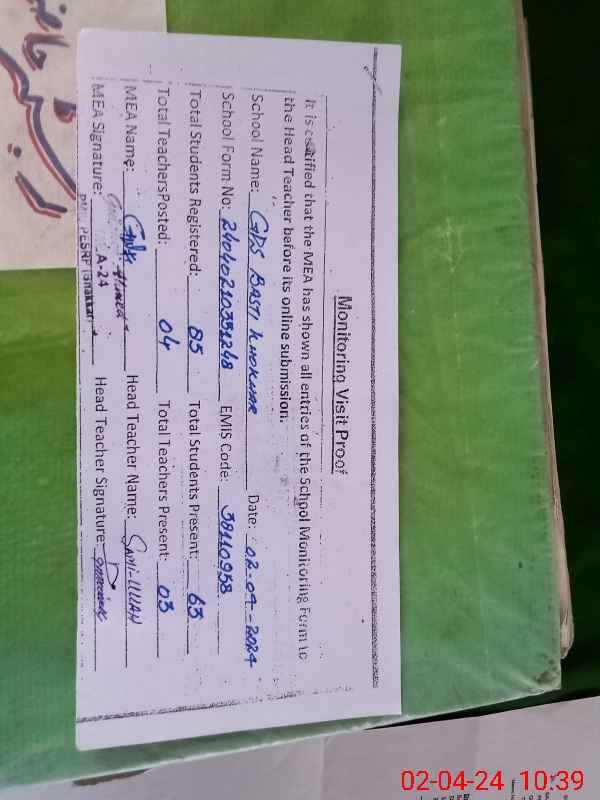 Monitoring Visit Proof
It is certified that the MEA has shown all entries of the School Monitoring Form to
the Head Teacher before its online submission.
School Name: GPS BASTI KHOKHAR Date: 02-04-2024
School Form No: 240402103351248 EMIS Code: 38110958
Total Students Registered: 85 Total Students Present: 63
Total TeachersPosted: 04 Total Teachers Present: 03
MEA Name: Ahmed Head Teacher Name: SAMI-ULLAH
MEA Signature: A-24 Head Teacher Signature:
02-04-24 10:39